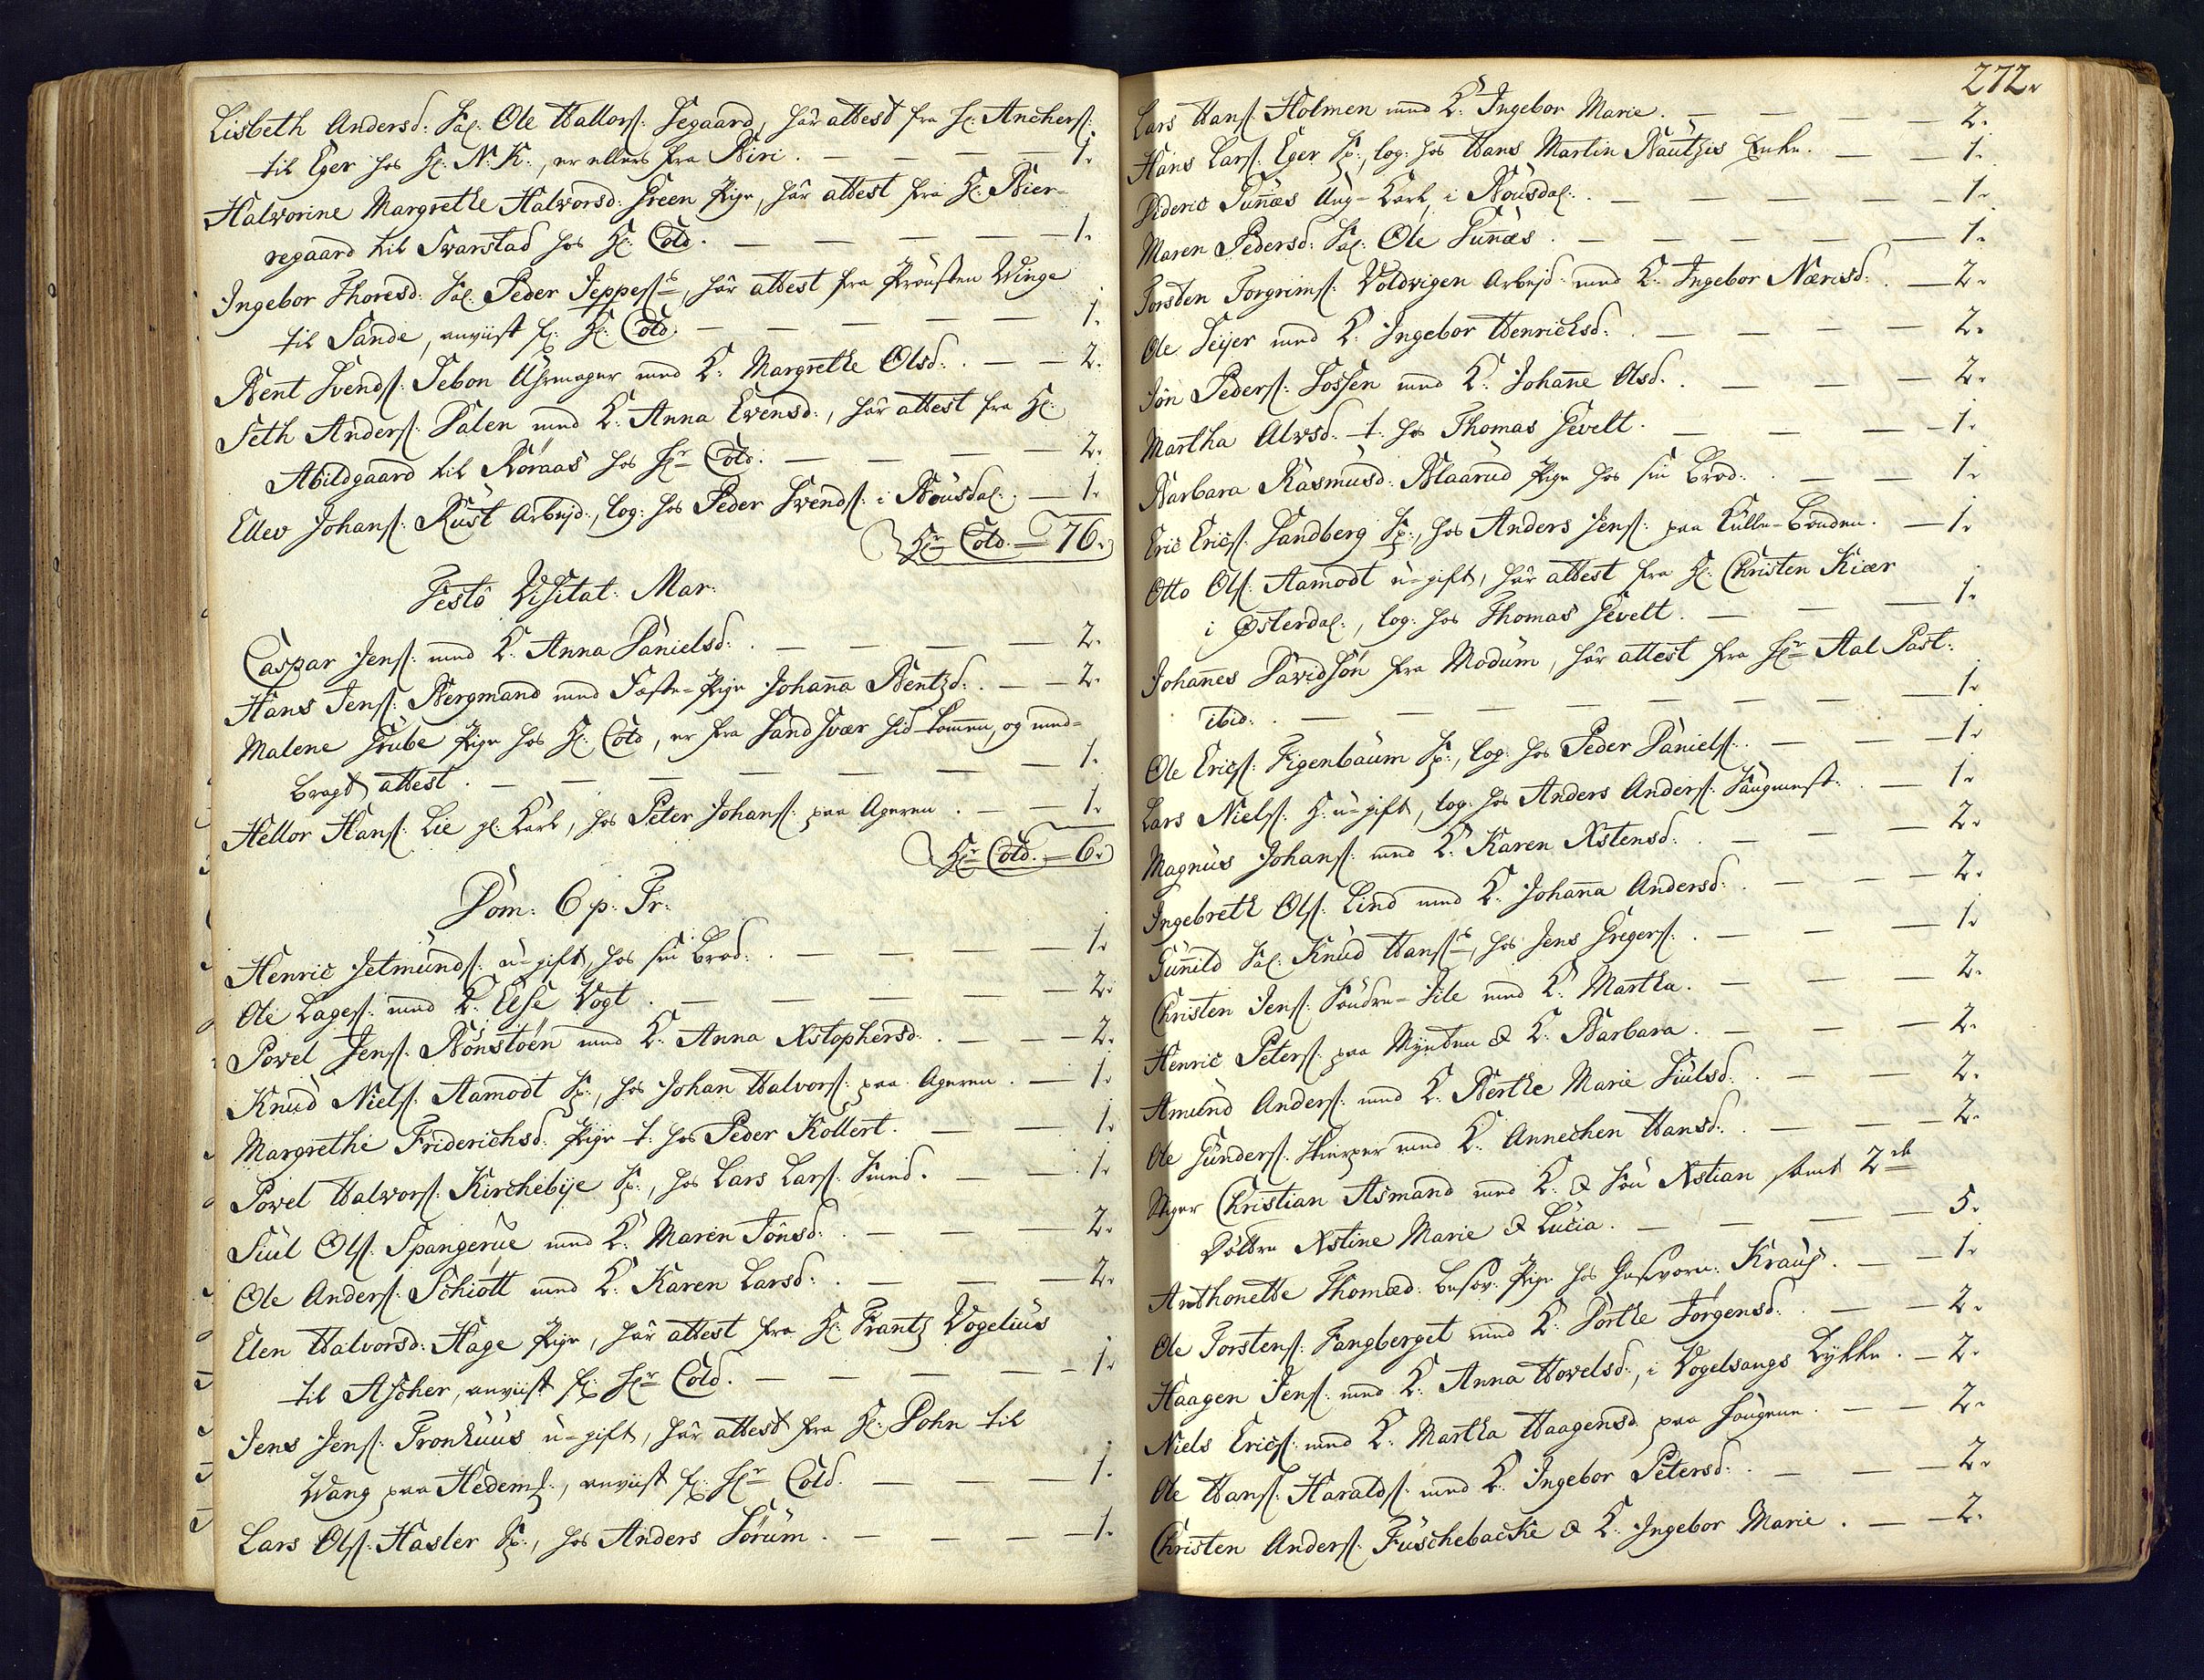 Lisbeth Andersd: Sal: Ole Hallorſ: Segaard, har attest fra H: Ancherſ:
til Eger hos H: N: K:, er ellers fra Biri. — 1.
Halvorine Margrethe Halvorsd: Green Pige, har attest fra H: Bier-
regaard til Svarstad hos H: Cold. — 1.
Ingebor Thoresd: Sal: Peder Jeppeſs, har attest fra Prousten Winge
til Sande, anviist f: H: Cold. — 1.
Bent Svendſ: Sebon Uhrmager med K: Margrethe Olsd: . — 2.
Seth Anderſ: Dalen med K: Anna Evensd:, har attest fra H:
Abildgaard til Röraas hos Hr Cold. — 2.
Ellev Johanſ: Rust Arbejd:, log: hos Peder Svendſ: i Bousdal: . — 1.
Hr Cold. — 76.
Festo Visitat: Mar:
Caspar Jenſ: med K: Anna Danielsd: . — 2.
Hans Jenſ: Bergmand med Fæste-Pige Johanna Bentzd: . — 2.
Malene Grube Pige hos H: Cold, er fra Sandsvær hid kommen, og med-
bragt attest. — 1.
Hellor Hanſ: Lie gl: Karl, hos Peter Johanſ: paa Ageren. — 1.
Hr Cold. — 6.
Dom: 6 p: Tr:
Henric Jetmundſ: u-gift, hos sin Brod: . — 1.
Ole Lageſ: med K: Else Vogt. — 2.
Povel Jenſ: Bönstöen med K: Anna Xstophersd: . — 2.
Knud Nielſ: Aamodt Sp:, hos Johan Halvorſ: paa Ageren. — 1.
Margrethe Friderichsd: Pige t: hos Peder Kollert. — 1.
Povel Halvorſ: Kirchebÿe Sp:, hos Lars Larſ: Smed. — 1.
Siul Olſ: Spangerue med K: Maren Jönsd: . — 2.
Ole Anderſ: Schiött med K: Karen Larsd: . — 2.
Elen Halvorsd: Hage Pige, har attest fra H: Frantz Vogelius
til Ascher, anviist f: Hr Cold. — 1.
Jens Jenſ: Tronhuus u-gift, har attest fra H: Pohn til
Wang paa Hedemſ:, anviist f: Hr Cold. — 1.
Lars Olſ: Hasler Sp:, hos Anders Sörum. — 1.
272.
Lars Hanſ: Holmen med K: Ingebor Marie. — 2.
Hans Larſ: Eger Sp:, log: hos Hans Martin Bautzis Enke. — 1.
Dideric Tunnæs Ung-Karl, i Bousdal: . — 1.
Maren Pedersd: Sal: Ole Tunæs. — 1.
Torsten Torgrimſ: Voldvigen Arbejd: med K: Ingebor Nærisd: . — 2.
Ole Seijer med K: Ingebor Henrichsd: . — 2.
Jön Pederſ: Fossen med K: Johanne Olsd: . — 2.
Martha Alvsd: t: hos Thomas Gevelt. — 1.
Barbara Rasmusd: Blaarud Pige hos sin Brod: . — 1.
Eric Ericſ: Sandberg Sp:, hos Anders Jenſ: paa Kulle-Bonden. — 1.
Otto Olſ: Aamodt u-gift, har attest fra H: Christen Kiær
i Österdal:, log: hos Thomas Gevelt. — 1.
Johannes Davidsön fra Modum, har attest fra Hr Aal Past:
ibid: . — 1.
Ole Ericſ: Figenbaum Sp:, log: hos Peder Danielſ: . — 1.
Lars Nielſ: H: u-gift, log: hos Anders Anderſ: Saugmest: . — 1.
Magnus Johanſ: med K: Karen Xstensd: . — 2.
Ingebreth Olſ: Lind med K: Johanna Andersd: . — 2.
Gunild Sal: Knud Hanſs, hos Jens Gregerſ: . — 1.
Christen Jenſ: Söndre-Jile med K: Martha. — 2.
Henric Peterſ: paa Mynten & K: Barbara. — 2.
Amund Anderſ: med K: Berthe Marie Siulsd: . — 2.
Ole Gunderſ: Skierper med K: Annechen Hansd: . — 2.
Stiger Christian Asmand med K: & Sön Xstian samt 2de
Döttre Xstine Marie & Lucia. — 5.
Anthonette Thomæd: besov: Pige hos Gesvorn: Kraus. — 1.
Ole Torstenſ: Fangberget med K: Dorthe Jörgensd: . — 2.
Haagen Jenſ: med K: Anna Hovelsd:, i Vogelsangs Lykke. — 2.
Niels Ericſ: med K: Martha Haagensd: paa Haugene. — 2.
Ole Hanſ: Haraldſ: med K: Ingebor Petersd: . — 2.
Christen Anderſ: Fuschebache & K: Ingebor Marie. — 2.